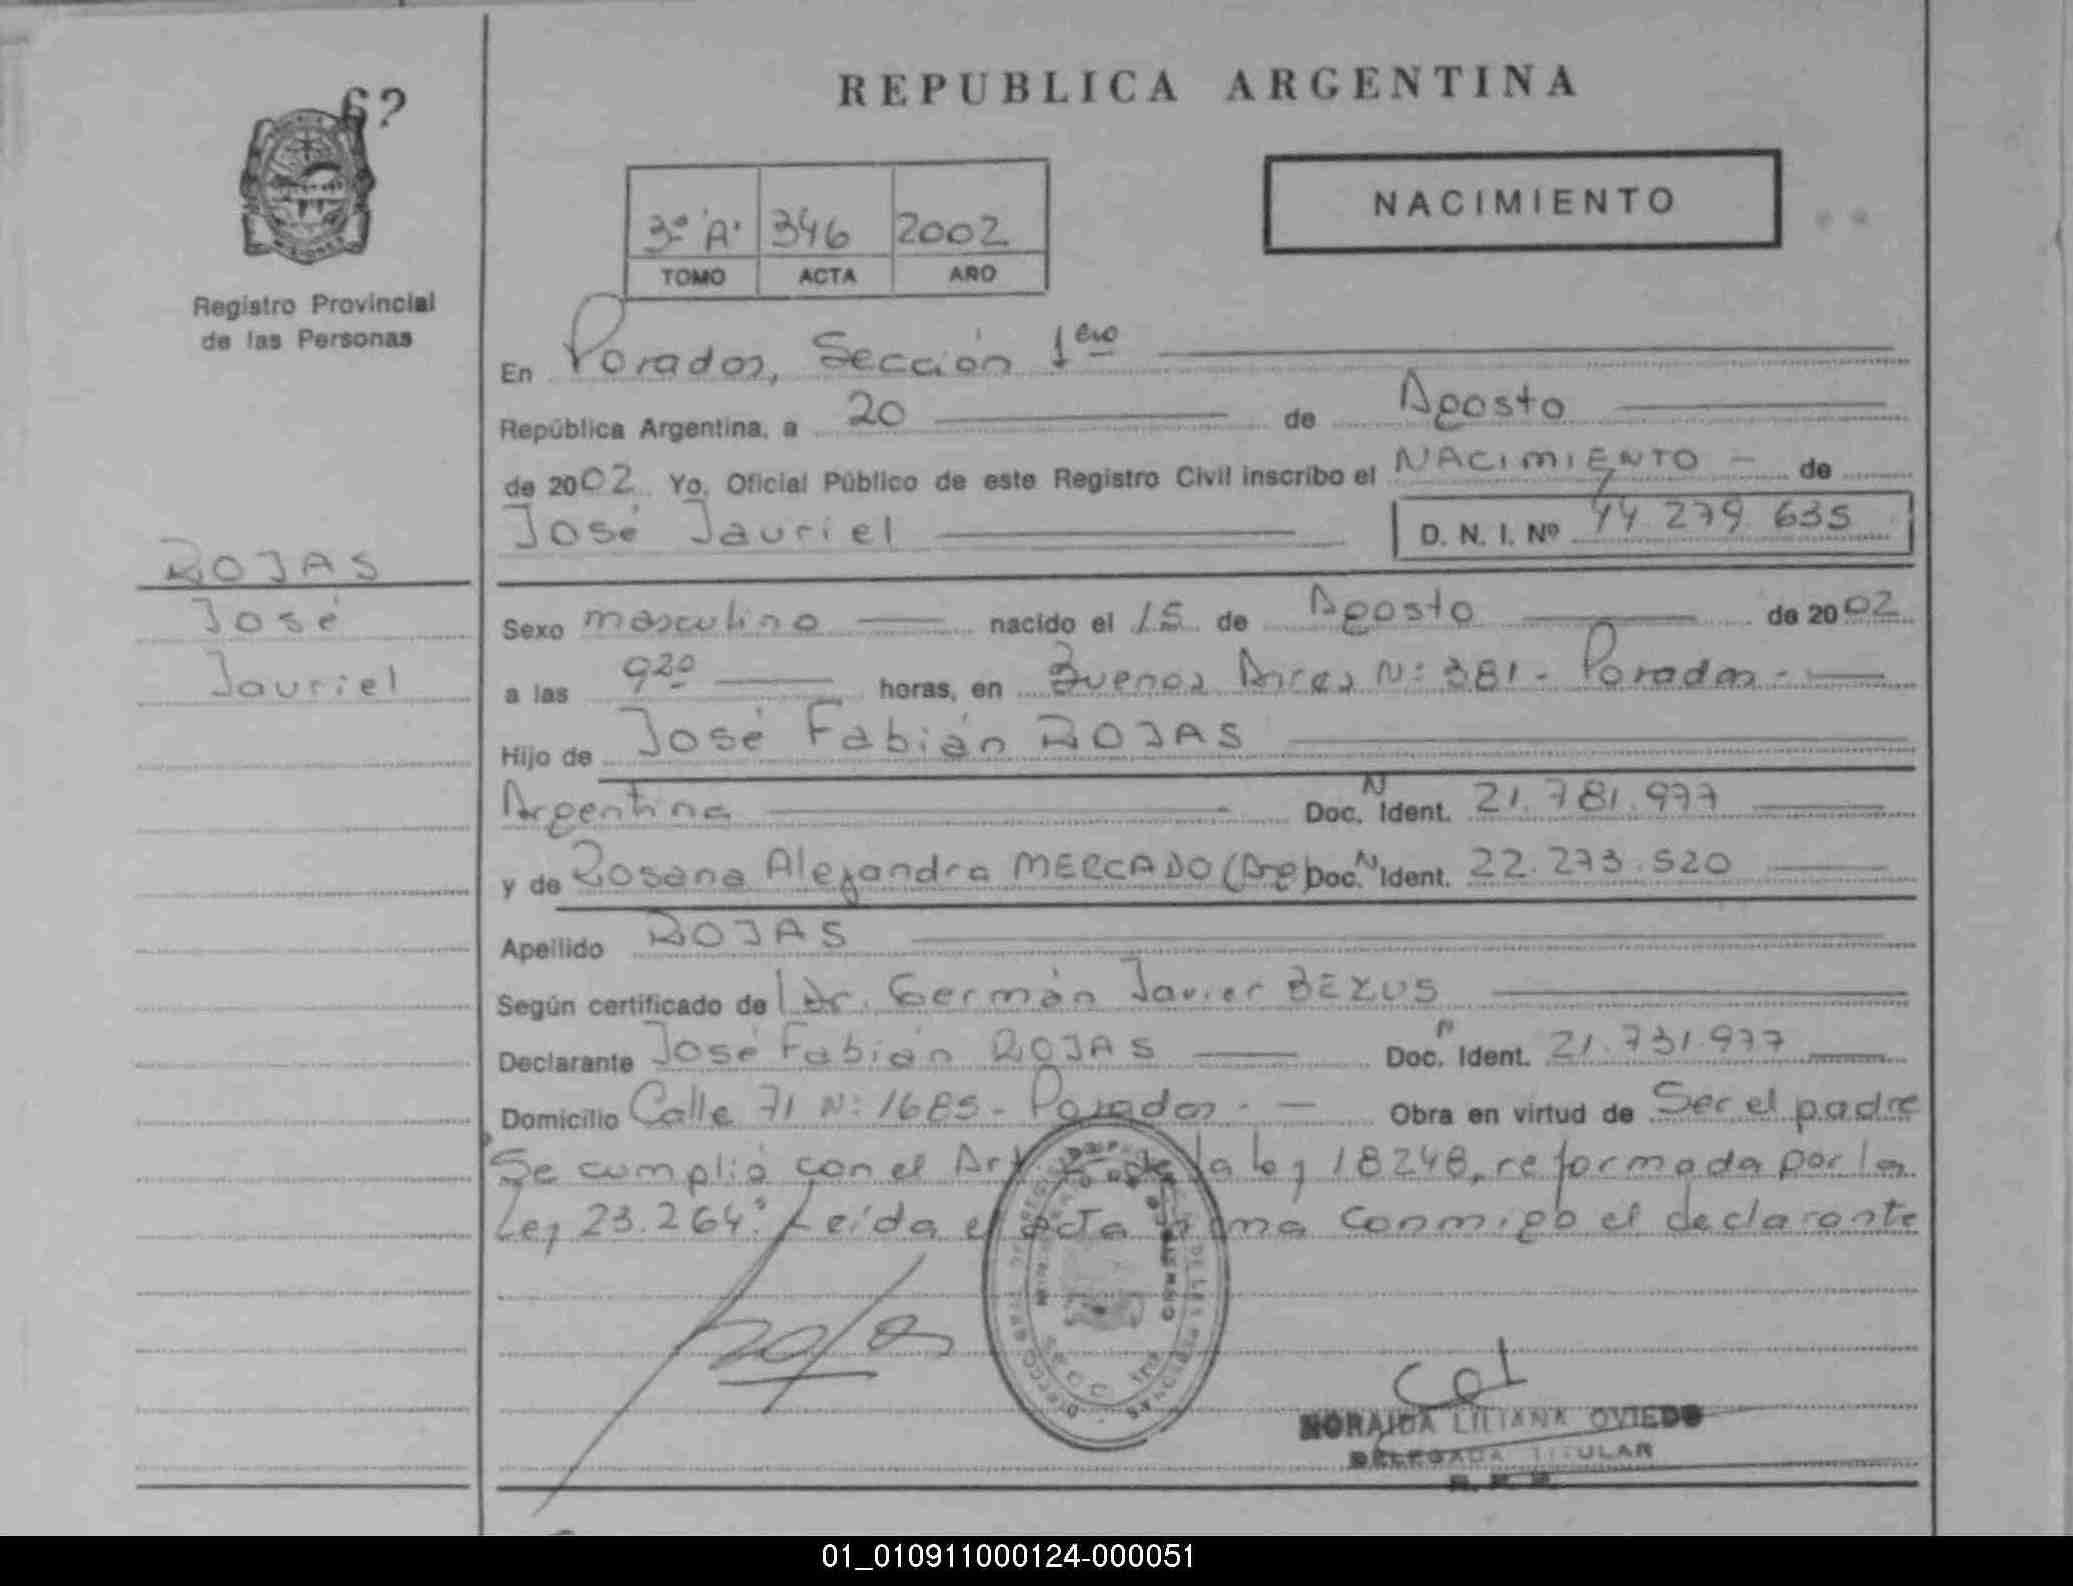 6?
REPUBLICA ARGENTINA
NACIMIENTO
3º "A" 346 2002
TOMO ACTA AÑO
Registro Provincial
de las Personas
En Posadas, Sección 1era
República Argentina, a 20 de Agosto
de 2002 Yo, Oficial Público de este Registro Civil inscribo el NACIMIENTO - de
José Jauriel D. N. I. Nº 44 279 635
ROJAS
José
Jauriel
Sexo masculino nacido el 15 de Agosto de 2002
a las 9 20 horas, en Buenos Aires N: 381 - Posadas -
Hijo de José Fabián ROJAS
Argentina Doc. N Ident. 21.781.977
y de Rosana Alejandra MERCADO (Arg) Doc. N Ident. 22.273.520
Apellido ROJAS
Según certificado del Dr. Germán Javier BEZUS
Declarante José Fabián ROJAS Doc. N Ident. 21.731.977
Domicilio Calle 71 N: 1685 - Posadas - Obra en virtud de Ser el padre
Se cumplió con el Art de la ley 18248, reformada por la
Ley 23.264: Leída el acta firma conmigo el declarante
Rojas
NORAIDA LILIANA OVIEDO
DELEGADA TITULAR
01_010911000124-000051